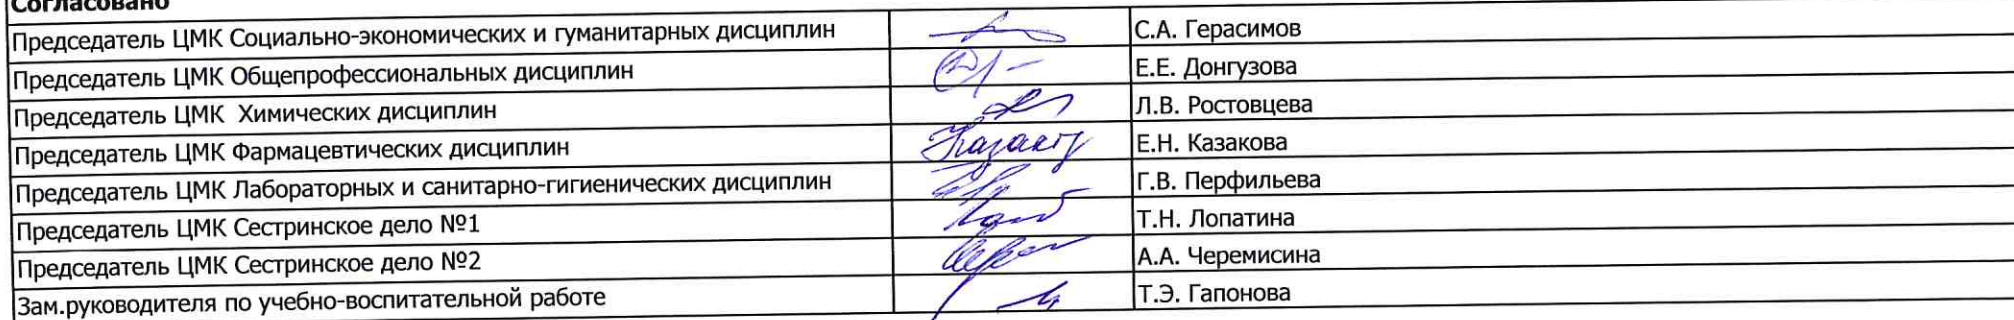 Согласовано
Председатель ЦМК Социально-экономических и гуманитарных дисциплин С.А. Герасимов
Председатель ЦМК Общепрофессиональных дисциплин Е.Е. Донгузова
Председатель ЦМК Химических дисциплин Л.В. Ростовцева
Председатель ЦМК Фармацевтических дисциплин Е.Н. Казакова
Председатель ЦМК Лабораторных и санитарно-гигиенических дисциплин Г.В. Перфильева
Председатель ЦМК Сестринское дело №1 Т.Н. Лопатина
Председатель ЦМК Сестринское дело №2 А.А. Черемисина
Зам.руководителя по учебно-воспитательной работе Т.Э. Гапонова